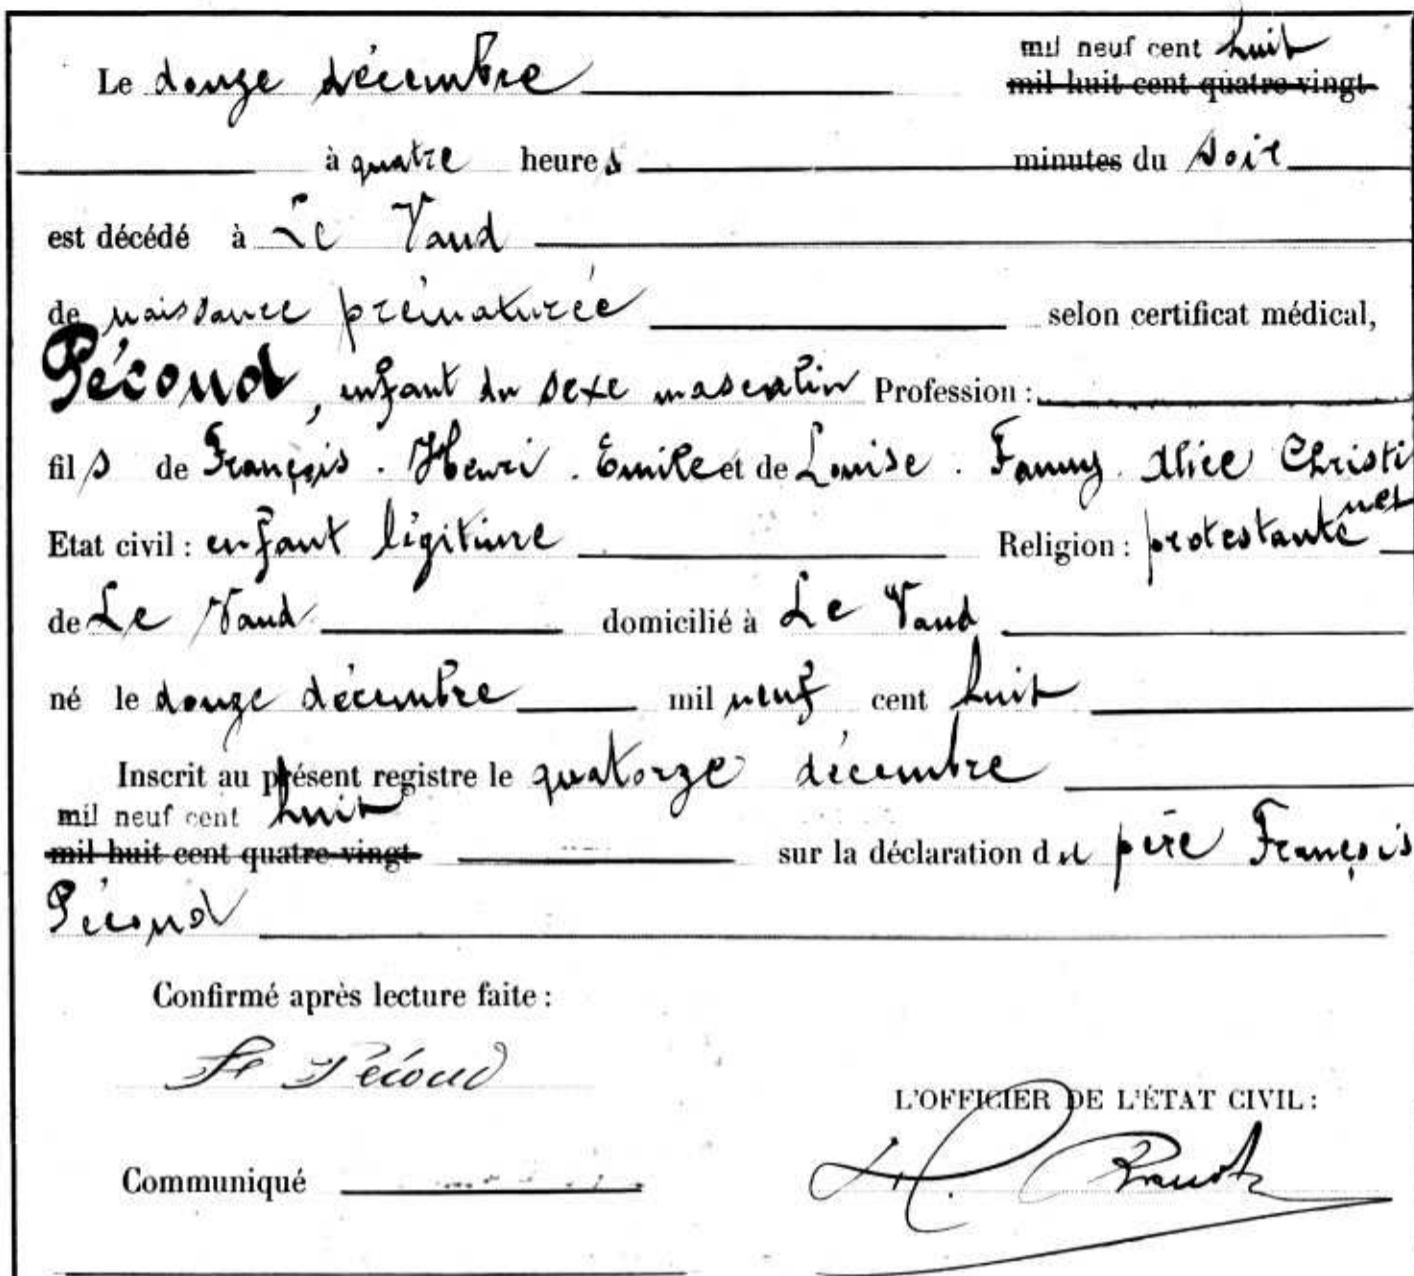 mil neuf cent huit
Le douze décembre mil huit cent quatre-vingt-
à quatre heures minutes du soir
est décédé à Le Vaud
de naissance prématurée selon certificat médical,
Pécoud, enfant du sexe masculin Profession :
fils de François. Henri. Emile et de Louise. Fanny. Alice Christi
net
Etat civil : enfant légitime Religion : protestante
de Le Vaud domicilié à Le Vaud
né le douze décembre mil neuf cent huit
Inscrit au présent registre le quatorze décembre
mil neuf cent huit
mil huit cent quatre-vingt- sur la déclaration du père François
Pécoud
Confirmé après lecture faite :
Pécoud
L'OFFICIER DE L'ÉTAT CIVIL :
Communiqué